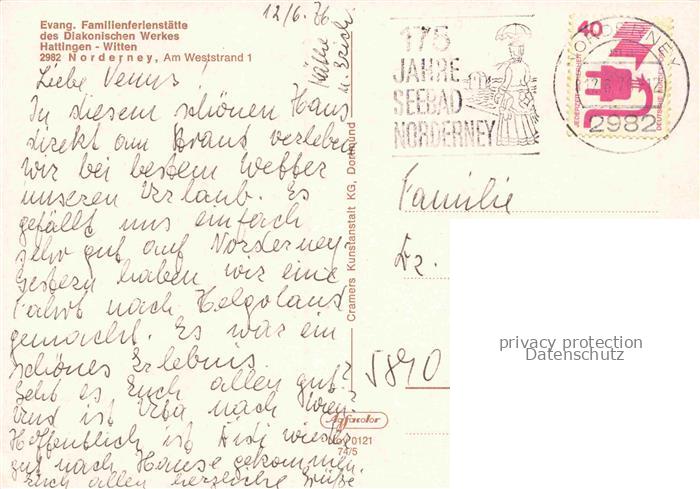 Evang. Familienferienstätte
des Diakonischen Werkes
Hattingen - Witten
2982 Norderney, Am Weststrand 1
12/6.76
Liebe Venns!
In diesem schönen Haus
direkt am Strand verleben
wir bei bestem Wetter
unseren Urlaub. Es
gefällt uns einfach
sehr gut auf Norderney.
Gestern haben wir eine
Fahrt nach Helgoland
gemacht. Es war ein
schönes Erlebnis.
Geht es Euch allen gut?
Und ist Uta nach Wien?
Hoffentlich ist Heidi wieder
gut nach Hause gekommen.
Euch allen herzliche Grüße
Käthe
u. Erich
Cramers Kunstanstalt KG, Dortmund
175
JAHRE
SEEBAD
NORDERNEY
40
NORDERNEY
2982
Familie
Dr.
5840
Agfacolor
0121
74/5
privacy protection
Datenschutz